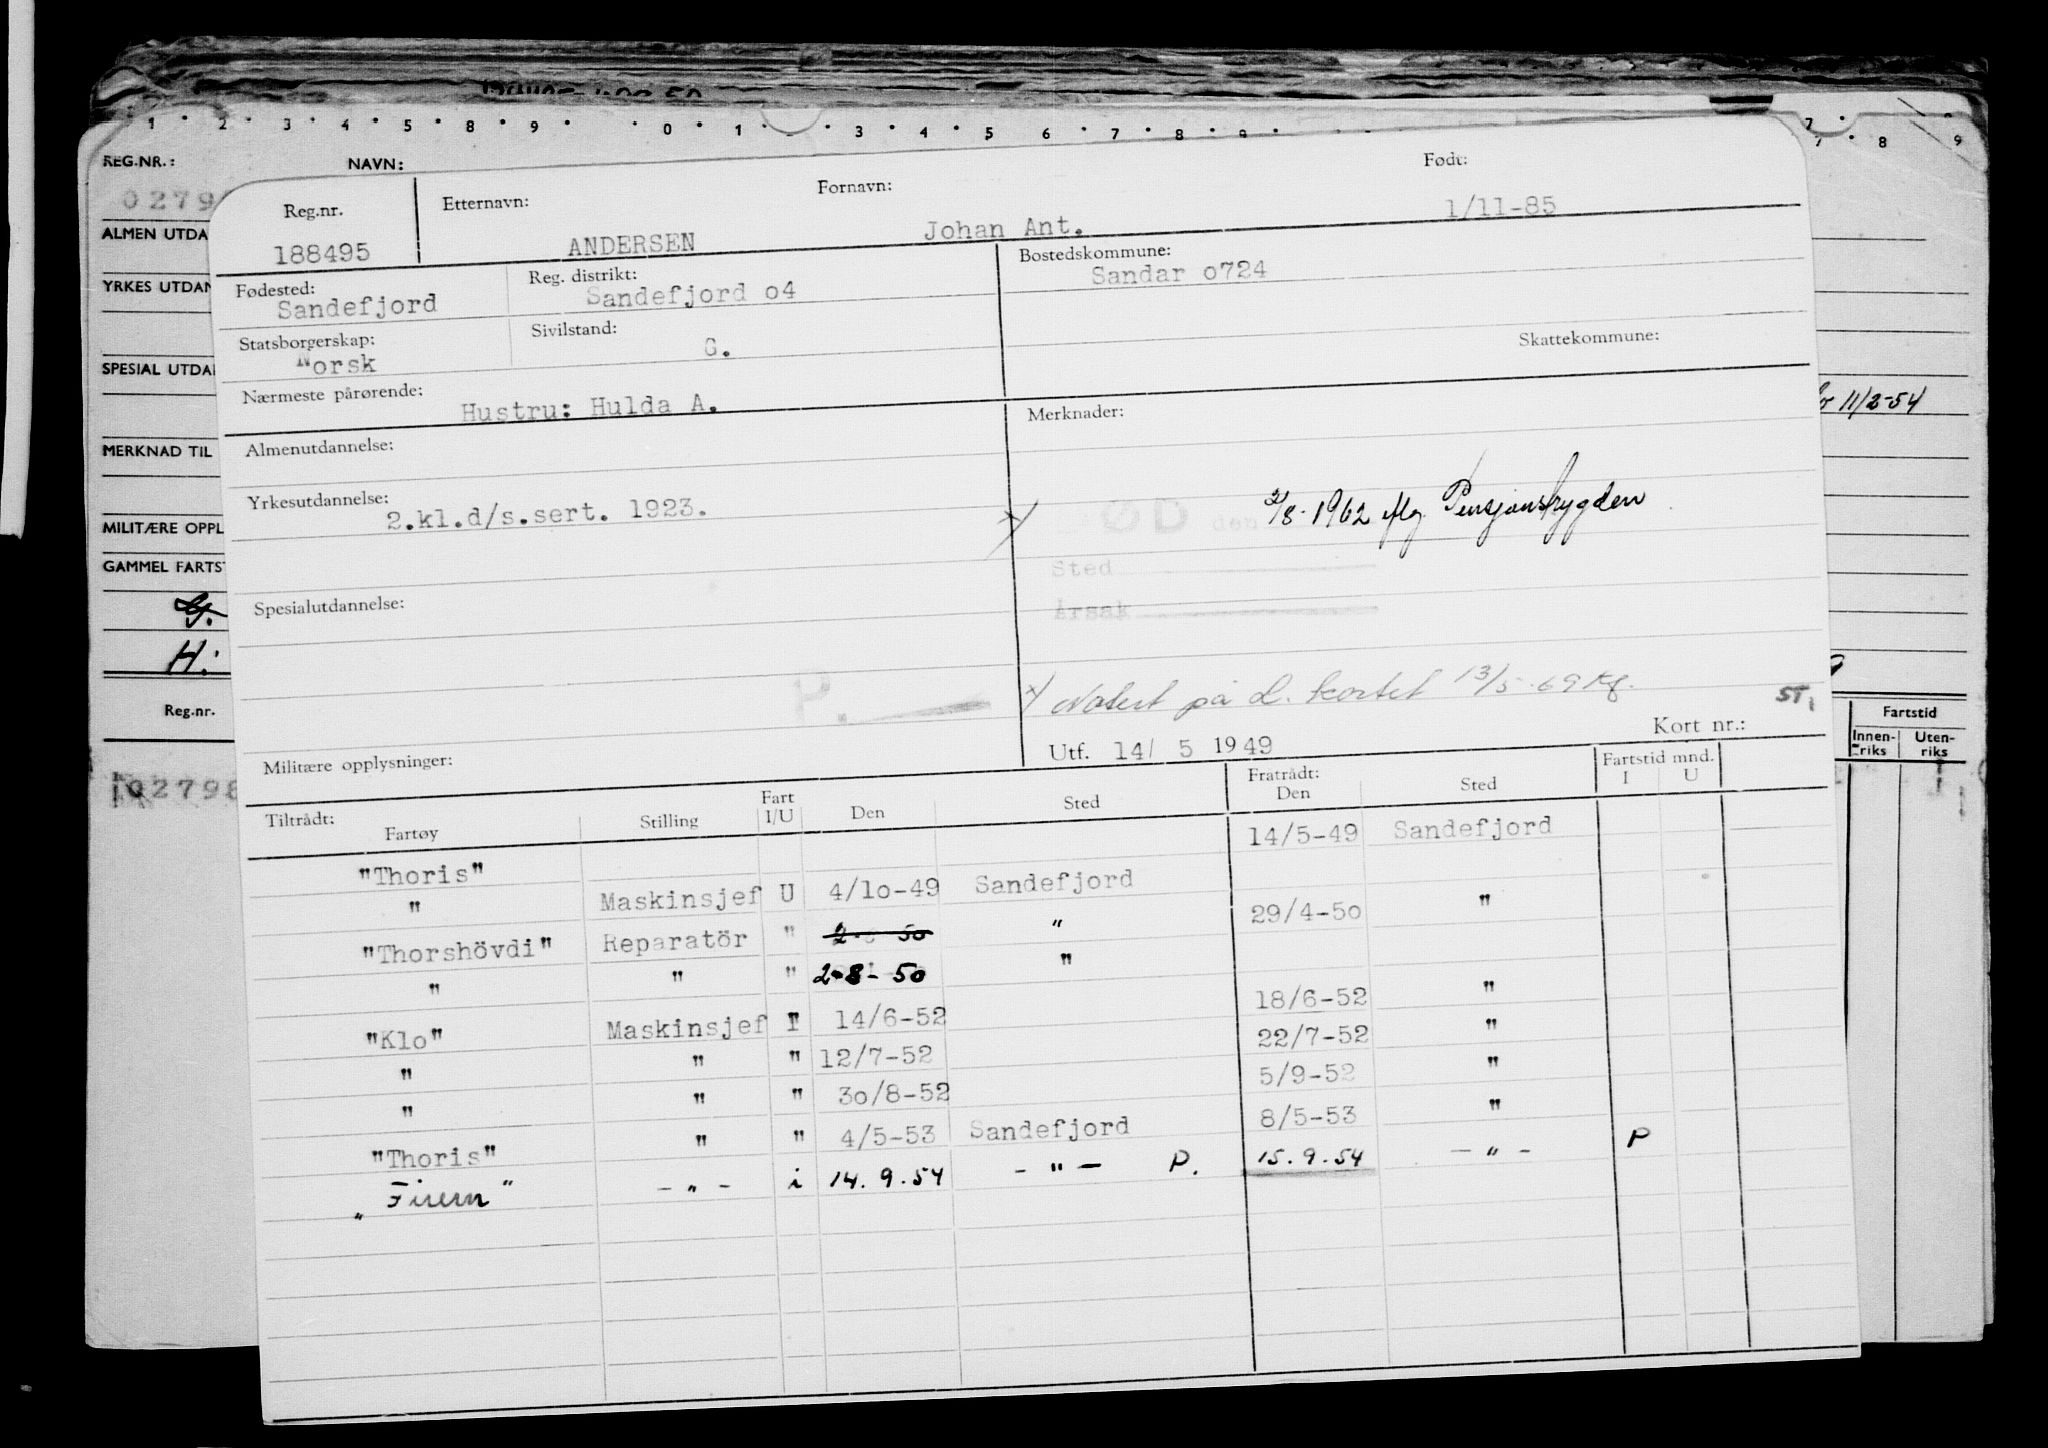 1 2 3 4 5 8 9 0 1 3 4 5 6 7 8 9 7 8 9
REG.NR.: NAVN:
ALMEN UTDA
YRKES UTDAN
SPESIAL UTDA
11/2-54
MERKNAD TIL
MILITÆRE OPPL
GAMMEL FARTST
H:
Reg.nr.
Fartstid
Innenriks Utenriks
02798
Reg.nr. Etternavn: Fornavn: Født:
188495 ANDERSEN Johan Ant. 1/11-85
Fødested: Reg. distrikt: Bostedskommune:
Sandefjord Sandefjord o4 Sandar o724
Statsborgerskap: Sivilstand: Skattekommune:
Norsk G.
Nærmeste pårørende: Merknader:
Hustru: Hulda A.
Almenutdannelse:
Yrkesutdannelse:
2.kl.d/s.sert. 1923.
x) ØD den 2/8-1962 iflg. Pensjonstrygden
Sted
Årsak
Spesialutdannelse:
P.
x) Notert på d. kortet 13/5-69 Kf.
ST,
Utf. 14/ 5 1949 Kort nr.:
Militære opplysninger:
Tiltrådt: Fratrådt: Fartstid mnd.
Fartøy Stilling Fart I/U Den Sted Den Sted I U
"Thoris" 14/5-49 Sandefjord
" Maskinsjef U 4/1o-49 Sandefjord 29/4-5o "
"Thorshövdi" Reparatör " 2- 50 "
" " " 2-8-50 "
"Klo" Maskinsjef I 14/6-52 18/6-52 "
" " " 12/7-52 22/7-52 "
" " " 3o/8-52 5/9-52 "
"Thoris" " " 4/5-53 Sandefjord 8/5-53 "
" Firern " - " - i 14.9.54 - " - P. 15.9.54 - " - P